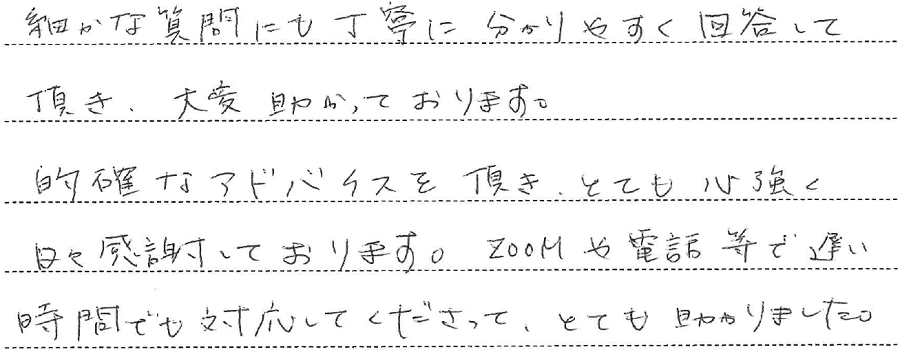 細かな質問にも丁寧に 分かりやすく回答して
頂き、大変 助かっております。
的確なアドバイスを 頂き、とても心強く
日々感謝しております。ZOOMや電話等で遅い
時間でも対応してくださって、とても助かりました。